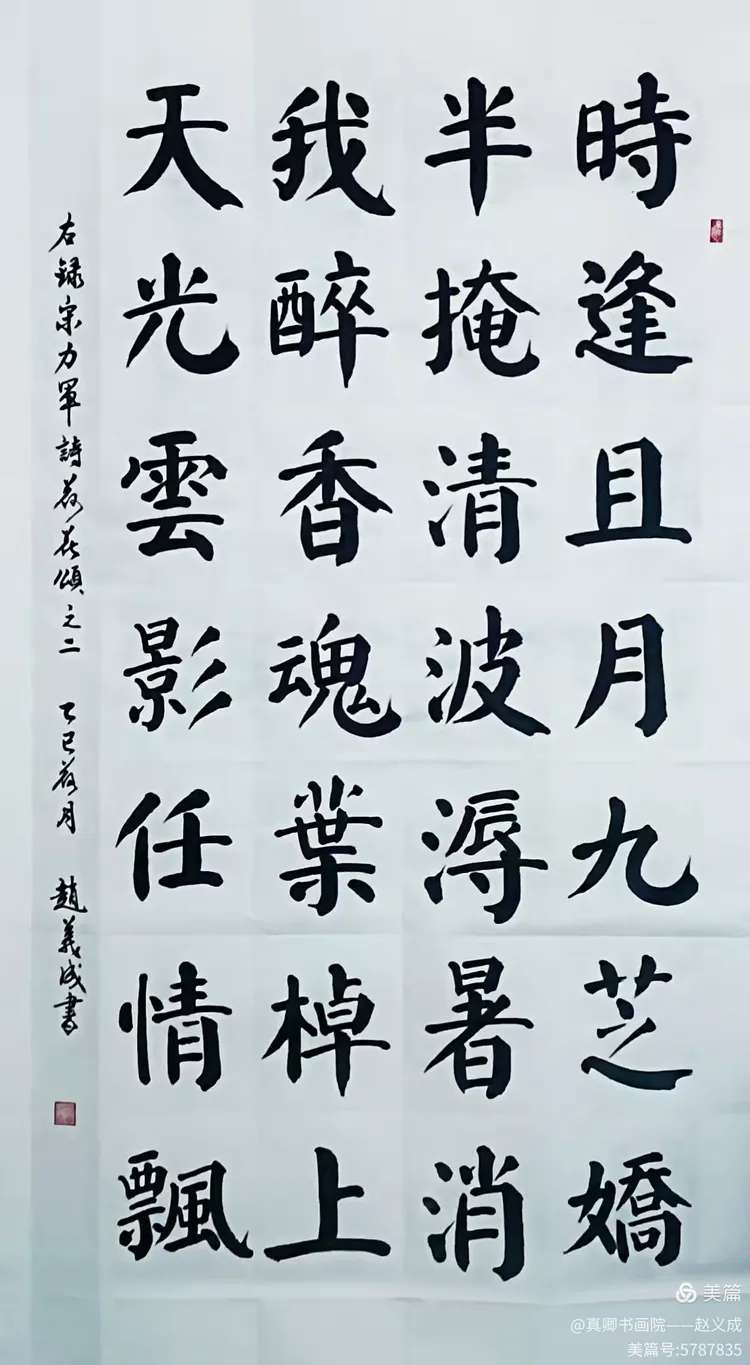 時逢且月九芝嬌
半掩清波溽暑消
我醉香魂葉棹上
天光雲影任情飄
右録宗力軍詩荷花頌之二 乙巳荷月 趙義成書
美篇
@真卿书画院——赵义成
美篇号:5787835